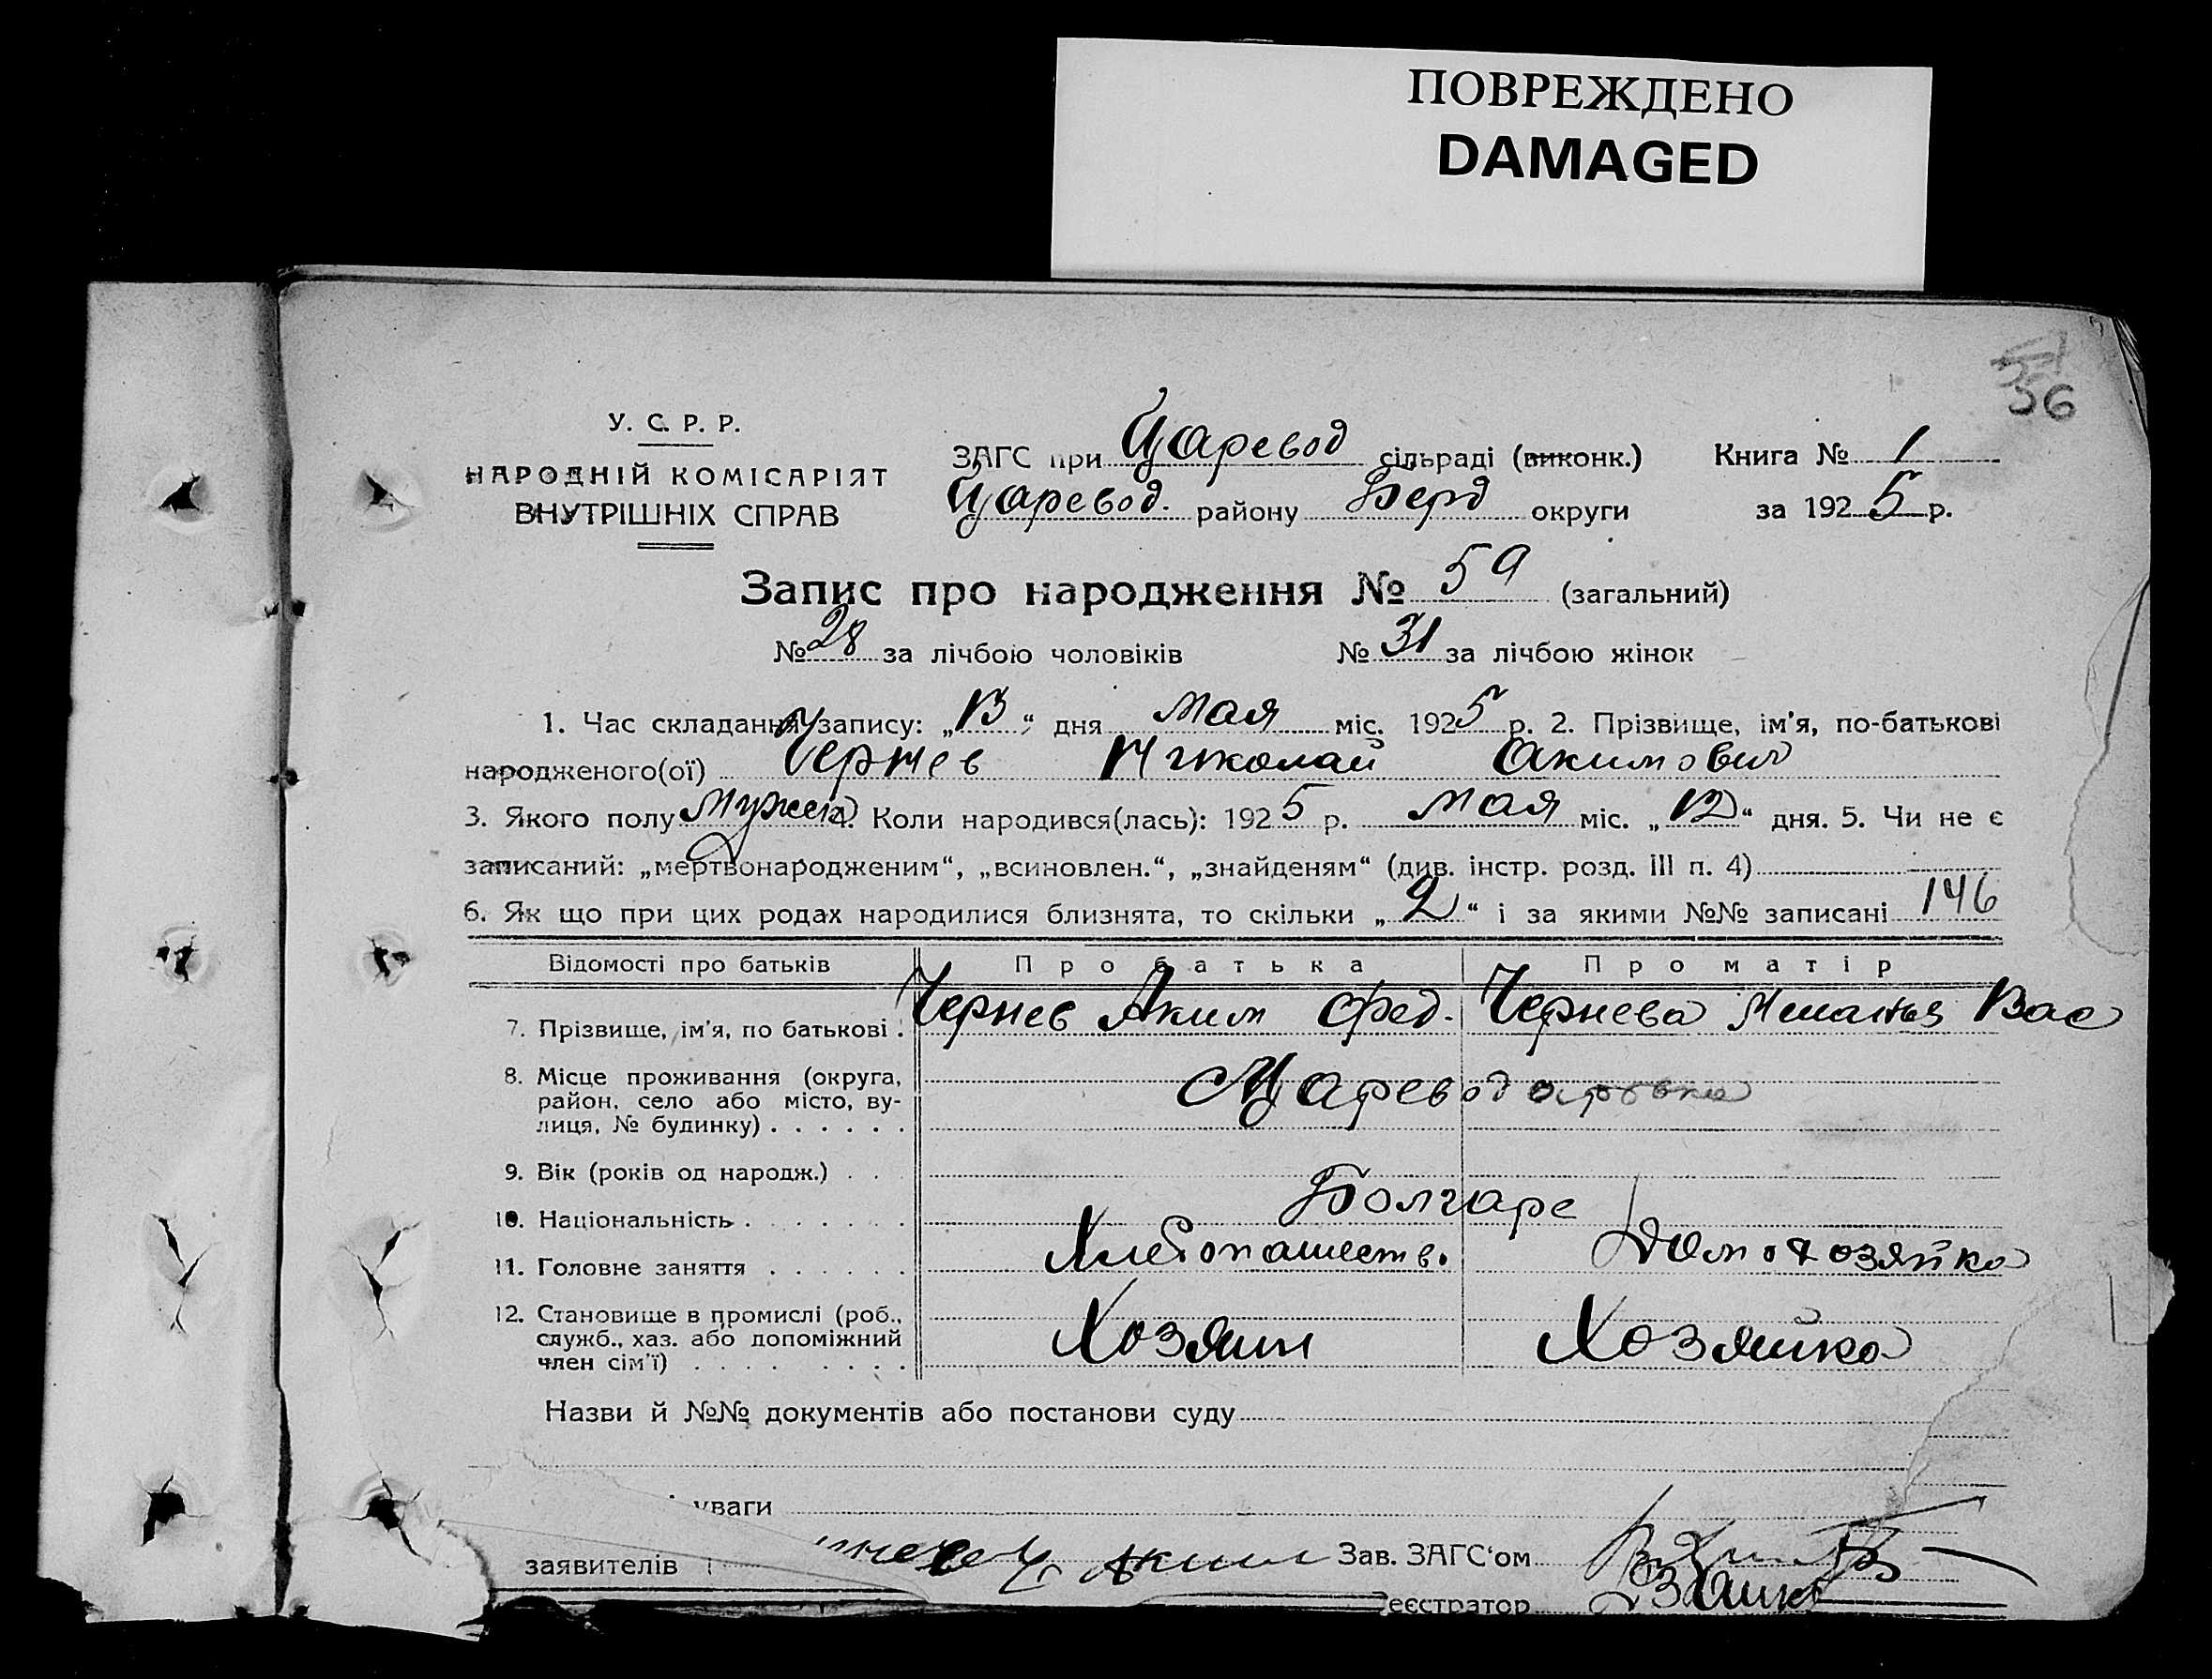 ПОВРЕЖДЕНО
DAMAGED
56
У. С. Р. Р.
НАРОДНІЙ КОМІСАРІЯТ
ВНУТРІШНІХ СПРАВ
ЗАГС при Царевод сільраді (виконк.) Книга № 1
Царевод. району Берд округи за 1925 р.
Запис про народження № 59 (загальний)
№ 28 за лічбою чоловіків № 31 за лічбою жінок
1. Час складання запису: „13“ дня мая міс. 1925 р. 2. Прізвище, ім'я, по-батькові
народженого(ої) Чернев Николай Акимович
3. Якого полу Мужск 4. Коли народився(лась): 1925 р. мая міс. „12“ дня. 5. Чи не є
записаний: „мертвонародженим“, „всиновлен.“, „знайденям“ (див. інстр. розд. III п. 4)
6. Як що при цих родах народилися близнята, то скільки „2“ і за якими №№ записані 146
Відомості про батьків Про батька Про матір
7. Прізвище, ім'я, по батькові . Чернев Аким Фед. Чернева Вас
8. Місце проживання (округа,
район, село або місто, ву-
лиця, № будинку) . . . . . .
Царевод
9. Вік (років од народж.) . . .
10. Національність . . . . . . . Болгаре
11. Головне заняття . . . . . . Хлебопашеств. Домохозяйка
12. Становище в промислі (роб.,
служб., хаз. або допоміжний
член сім'ї) . . . . . . . . .
Хозяин Хозяйка
Назви й №№ документів або постанови суду
уваги
заявителів Аким Зав. ЗАГС'ом
еєстратор